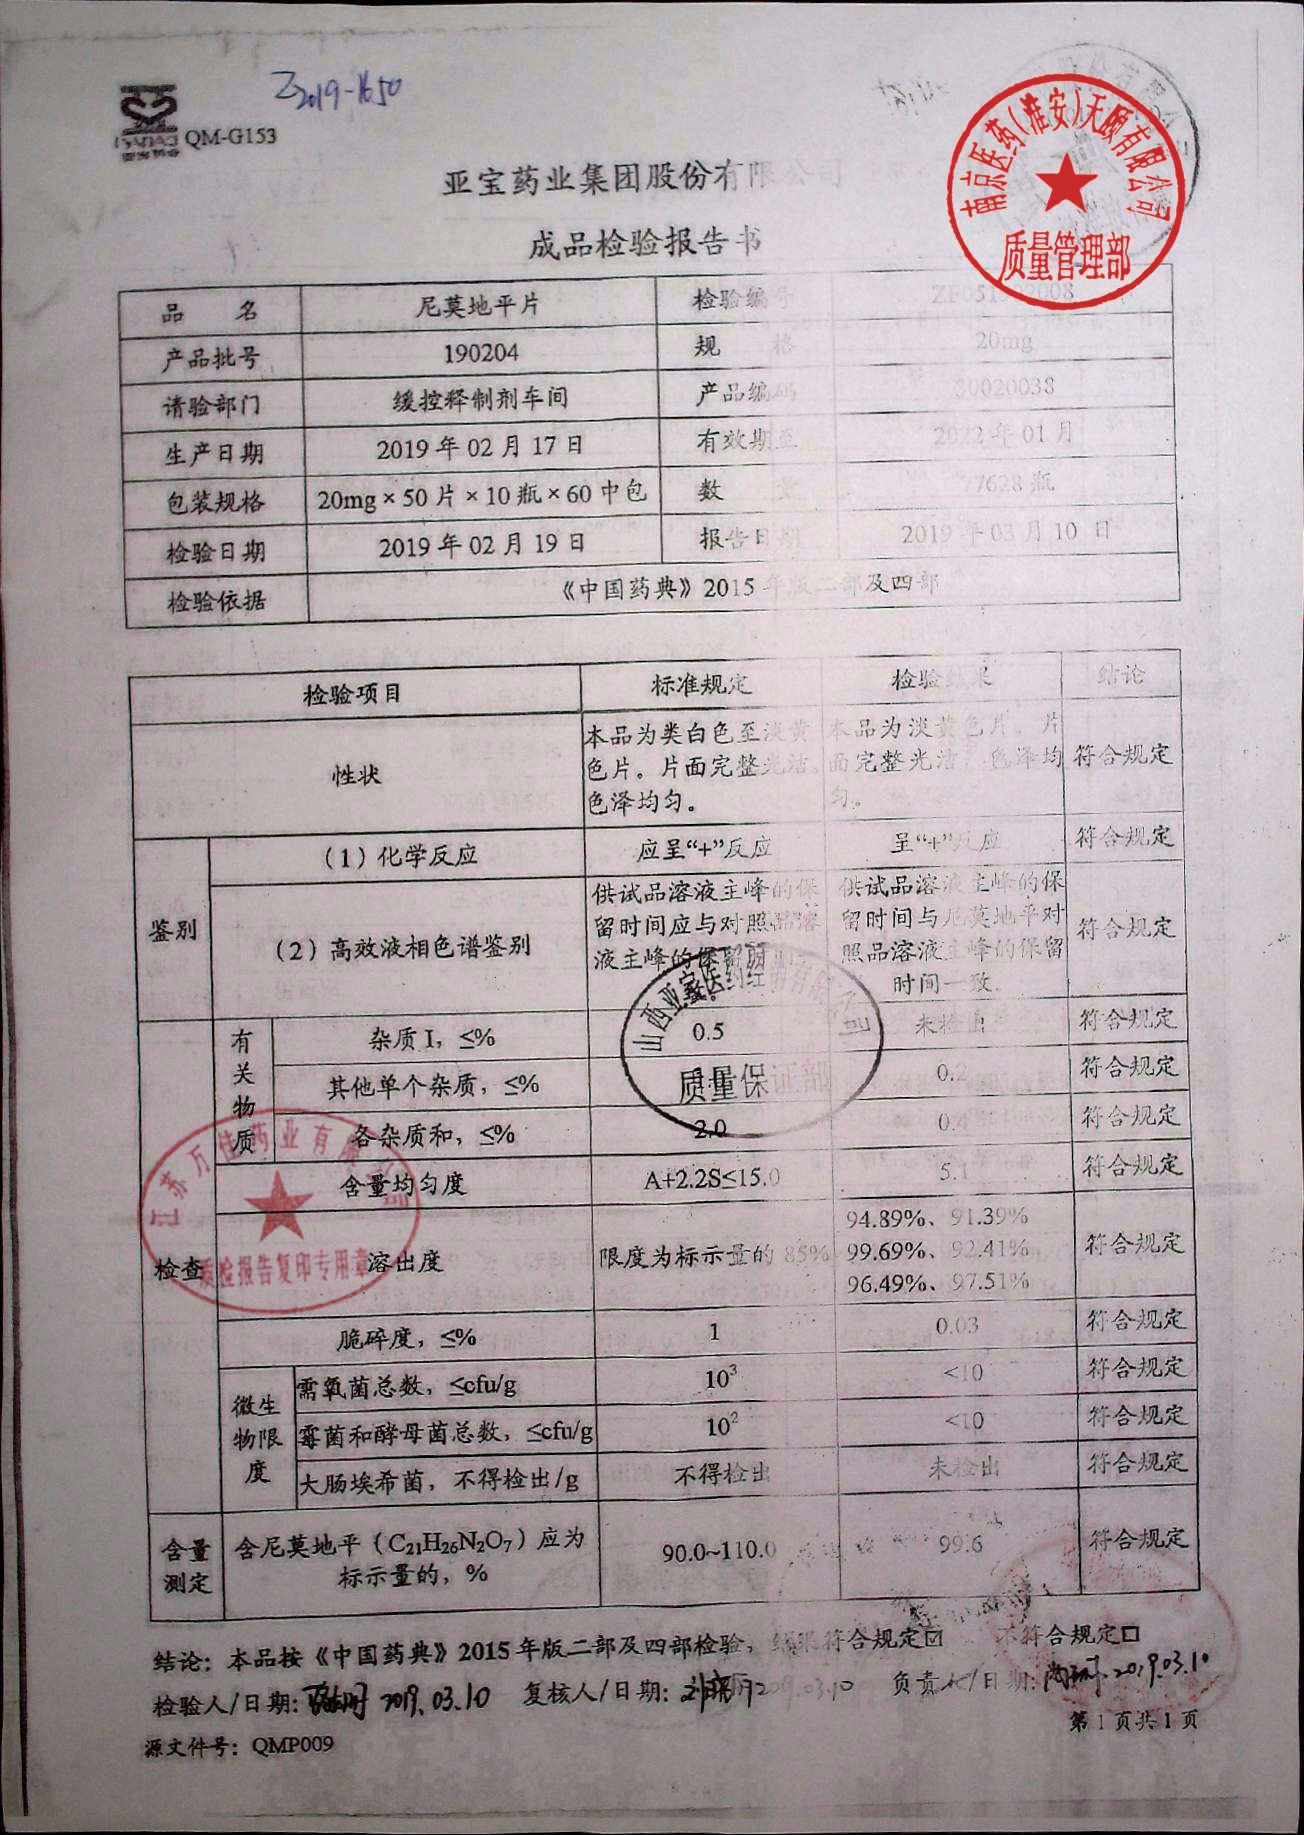 Z2019-1650
QM-G153
亚宝药业集团股份有限公司
成品检验报告书
南京医药(淮安)天颐有限公司
质量管理部
品 名 尼莫地平片 检验编号 ZF051902008
产品批号 190204 规 格 20mg
请验部门 缓控释制剂车间 产品编码 30020038
生产日期 2019年02月17日 有效期至 2022年01月
包装规格 20mg×50片×10瓶×60中包 数 量 77628瓶
检验日期 2019年02月19日 报告日期 2019年03月10日
检验依据 《中国药典》2015年版二部及四部
检验项目 标准规定 检验结果 结论
性状 本品为类白色至淡黄色片。片面完整光洁。色泽均匀。 本品为淡黄色片。片面完整光洁。色泽均匀。 符合规定
鉴别
(1)化学反应 应呈“+”反应 呈“+”反应 符合规定
(2)高效液相色谱鉴别 供试品溶液主峰的保留时间应与对照品溶液主峰的保留时 供试品溶液主峰的保留时间与尼莫地平对照品溶液主峰的保留时间一致。 符合规定
检查
有关物质
杂质I,≤% 0.5 未检出 符合规定
其他单个杂质,≤% 0.2 符合规定
各杂质和,≤% 2.0 0.4 符合规定
含量均匀度 A+2.2S≤15.0 5.1 符合规定
溶出度 限度为标示量的85% 94.89%、91.39% 99.69%、92.41% 96.49%、97.51% 符合规定
脆碎度,≤% 1 0.03 符合规定
微生物限度
需氧菌总数,≤cfu/g 10³ <10 符合规定
霉菌和酵母菌总数,≤cfu/g 10² <10 符合规定
大肠埃希菌,不得检出/g 不得检出 未检出 符合规定
含量测定 含尼莫地平(C₂₁H₂₆N₂O₇)应为标示量的,% 90.0~110.0 99.6 符合规定
山西亚宝医药经销有限公司
质量保证部
江苏万佳药业有限公司
质检报告复印专用章
结论:本品按《中国药典》2015年版二部及四部检验,结果符合规定☑ 不符合规定□
检验人/日期: 2019.03.10 复核人/日期: 2019.03.10 负责人/日期: 2019.03.10
第1页共1页
源文件号:QMP009